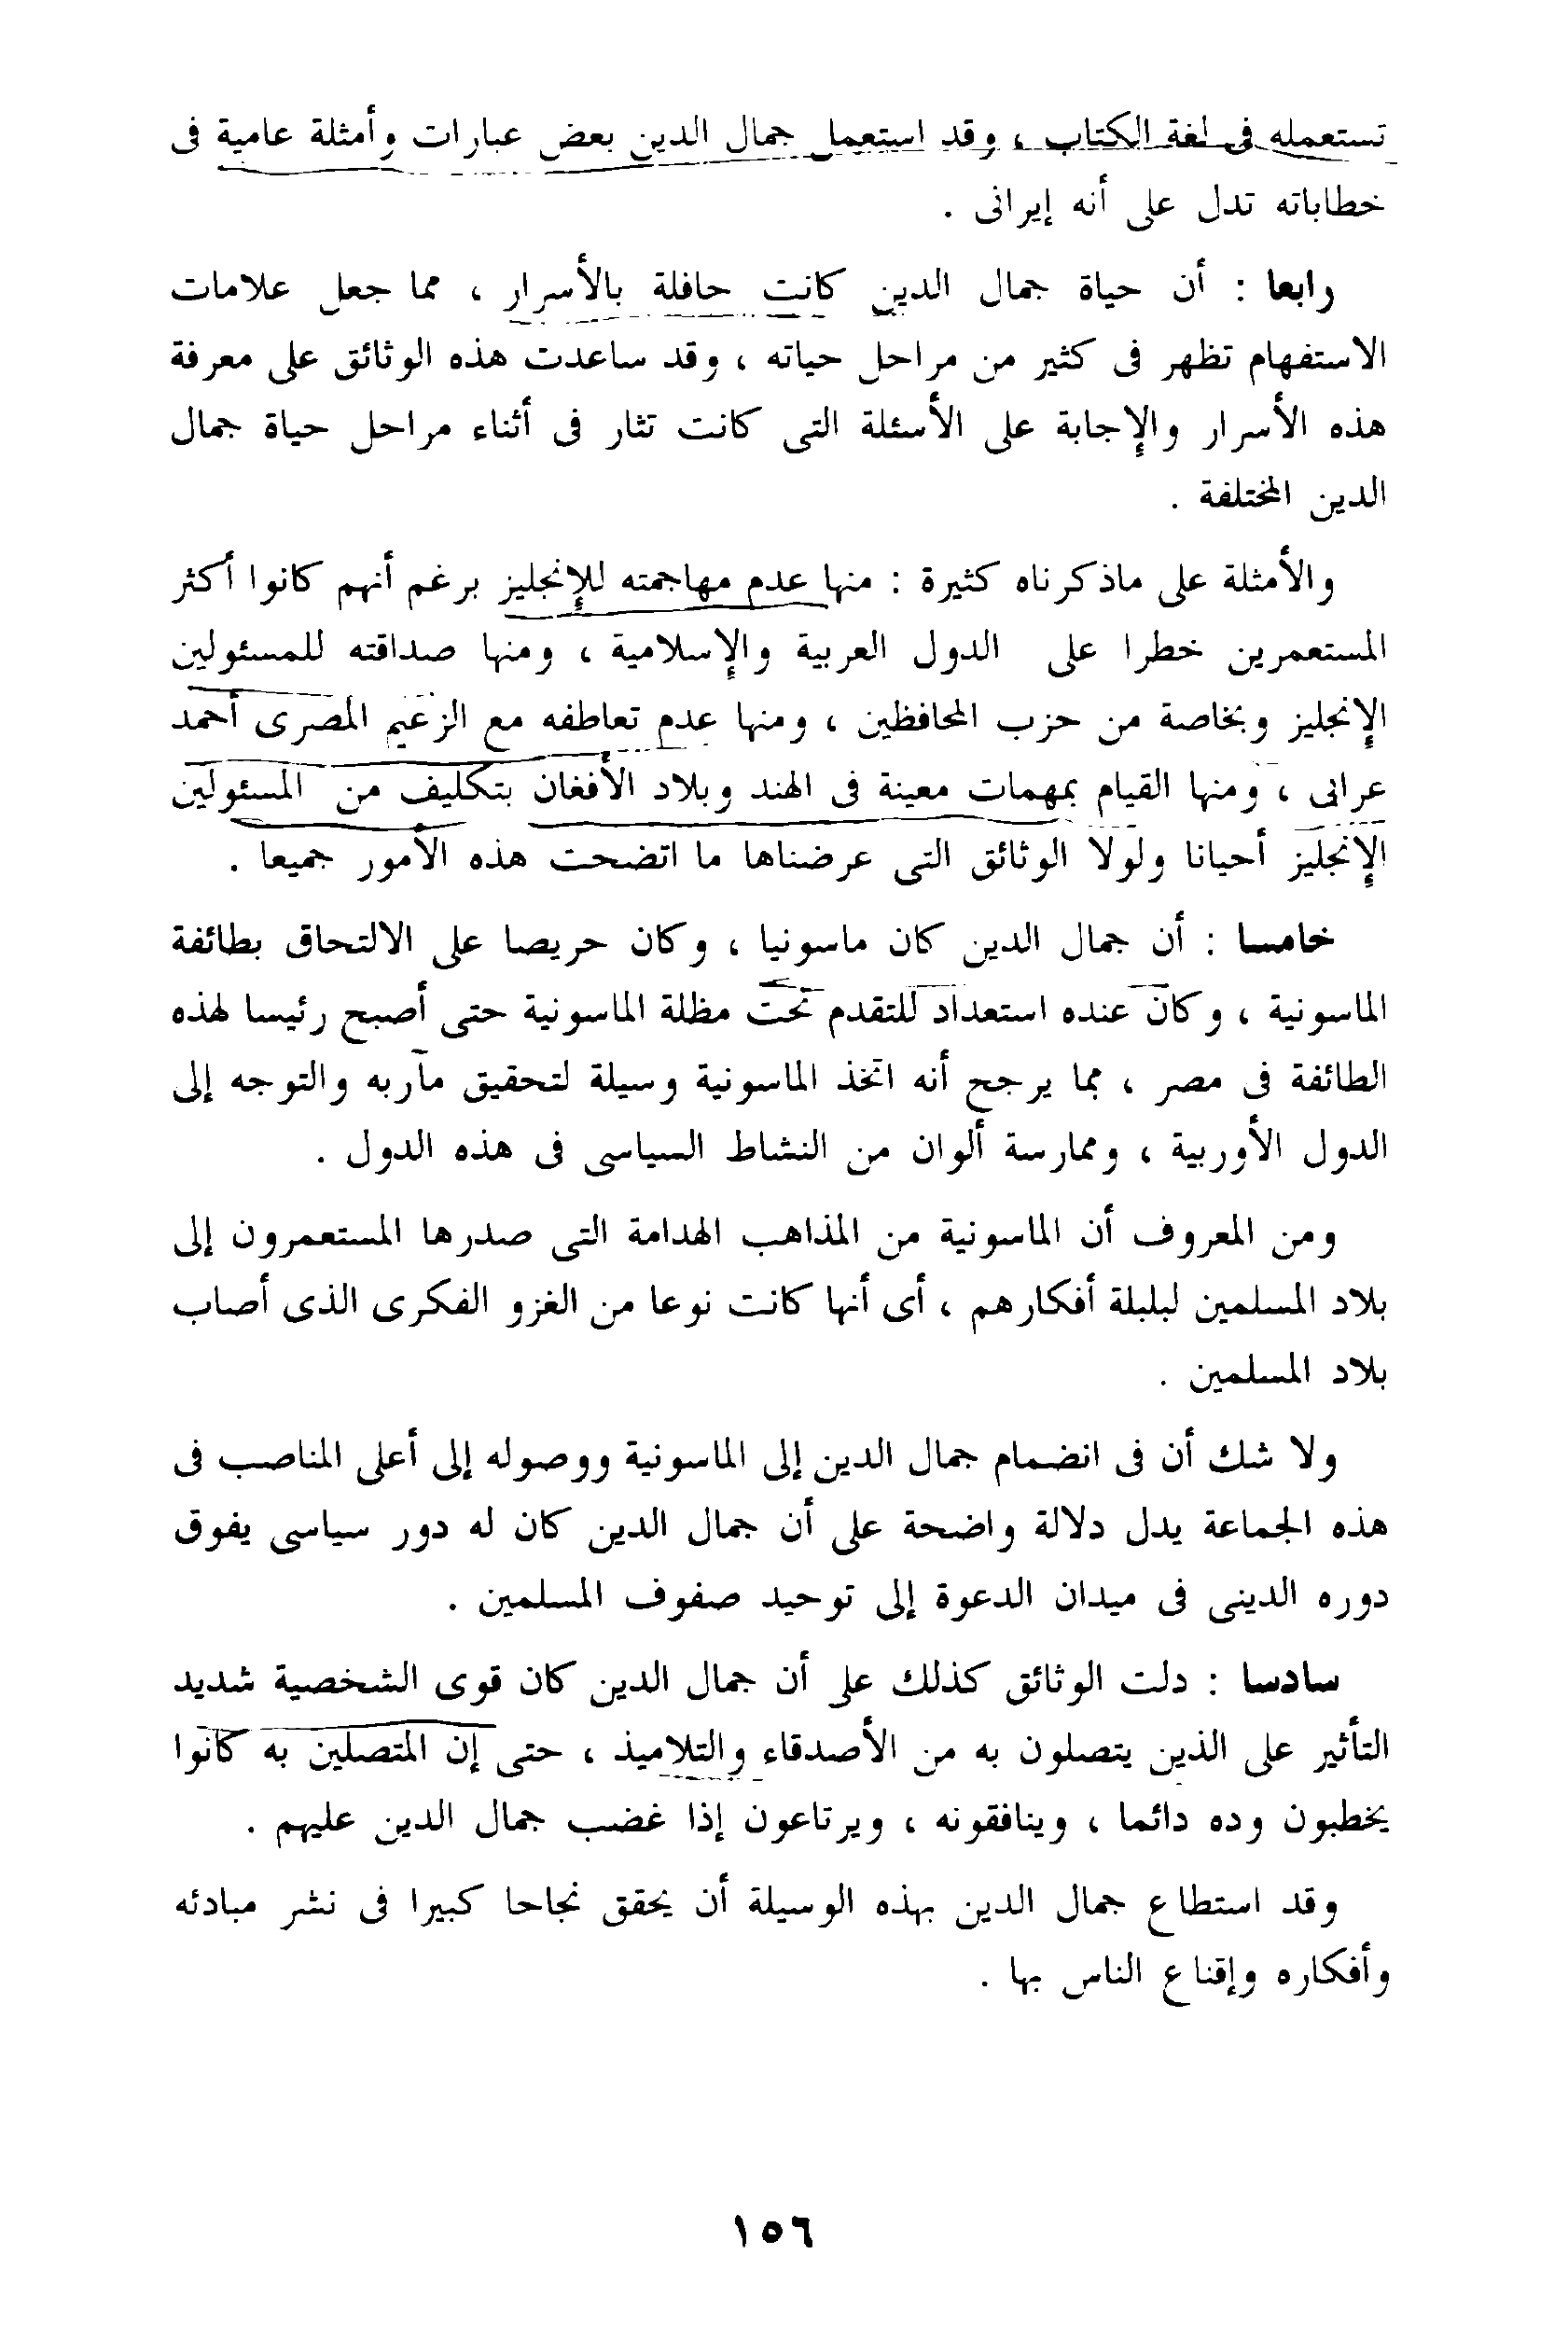 تستعمله فى لغة الكتاب ، وقد استعمل جمال الدين بعض عبارات وأمثلة عامية فى
خطاباته تدل على أنه إيرانى .
رابعا : أن حياة جمال الدين كانت حافلة بالأسرار ، مما جعل علامات
الاستفهام تظهر فى كثير من مراحل حياته ، وقد ساعدت هذه الوثائق على معرفة
هذه الأسرار والإجابة على الأسئلة التى كانت تثار فى أثناء مراحل حياة جمال
الدين المختلفة .
والأمثلة على ماذكرناه كثيرة : منها عدم مهاجمته للإنجليز برغم أنهم كانوا أكثر
المستعمرين خطرا على الدول العربية والإسلامية ، ومنها صداقته للمسئولين
الإنجليز وبخاصة من حزب المحافظين ، ومنها عدم تعاطفه مع الزعيم المصرى أحمد
عرابى ، ومنها القيام بمهمات معينة فى الهند وبلاد الأفغان بتكليف من المسئولين
الإنجليز أحيانا ولولا الوثائق التى عرضناها ما اتضحت هذه الأمور جميعا .
خامسا : أن جمال الدين كان ماسونيا ، وكان حريصا على الالتحاق بطائفة
الماسونية ، وكان عنده استعداد للتقدم تحت مظلة الماسونية حتى أصبح رئيسا لهذه
الطائفة فى مصر ، مما يرجح أنه اتخذ الماسونية وسيلة لتحقيق مآربه والتوجه إلى
الدول الأوربية ، وممارسة ألوان من النشاط السياسى فى هذه الدول .
ومن المعروف أن الماسونية من المذاهب الهدامة التى صدرها المستعمرون إلى
بلاد المسلمين لبلبلة أفكارهم ، أى أنها كانت نوعا من الغزو الفكرى الذى أصاب
بلاد المسلمين .
ولا شك أن فى انضمام جمال الدين إلى الماسونية ووصوله إلى أعلى المناصب فى
هذه الجماعة يدل دلالة واضحة على أن جمال الدين كان له دور سياسى يفوق
دوره الدينى فى ميدان الدعوة إلى توحيد صفوف المسلمين .
سادسا : دلت الوثائق كذلك على أن جمال الدين كان قوى الشخصية شديد
التأثير على الذين يتصلون به من الأصدقاء والتلاميذ ، حتى إن المتصلين به كانوا
يخطبون وده دائما ، وينافقونه ، ويرتاعون إذا غضب جمال الدين عليهم .
وقد استطاع جمال الدين بهذه الوسيلة أن يحقق نجاحا كبيرا فى نشر مبادئه
وأفكاره وإقناع الناس بها .
١٥٦